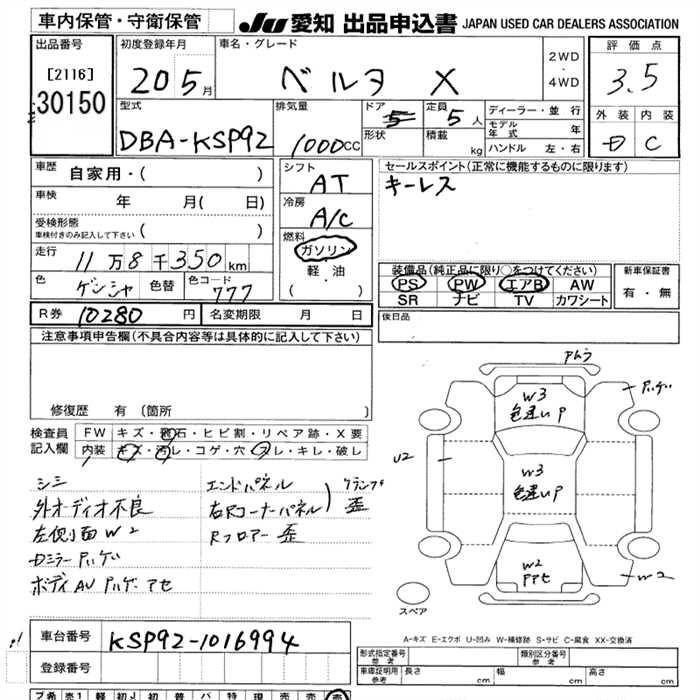 車内保管・守衛保管
JU 愛知 出品申込書 JAPAN USED CAR DEALERS ASSOCIATION
出品番号
[2116]
30150
初度登録年月
20 5月
車名・グレード
X
2WD
・
4WD
評価点
3.5
外装 内装
D C
型式
DBA-KSP92
排気量
1000CC
ドア
5
形状
定員
5人
積載 kg
ディーラー・並行
モデル年式 年
ハンドル 左・右
車歴 自家用・( )
車検 年 月( 日)
受検形態
車検付きのみ記入して下さい ( )
走行 11万8千350km
色 ゲンシャ 色替 色コード 777
シフト
AT
冷房
A/C
燃料
ガソリン
軽油
( ・ )
セールスポイント(正常に機能するものに限ります)
キーレス
装備品(純正品に限り○をつけてください)
PS PW エアB AW
SR ナビ TV カワシート
新車保証書
有・無
R券 10280円 名変期限 月 日
後日品
注意事項申告欄(不具合内容等は具体的に記入して下さい)
修復歴 有(箇所 )
検査員
記入欄
FW キズ・飛石・ヒビ割・リペア跡・X要
内装 キズ・汚レ・コゲ・穴・スレ・キレ・破レ
シミ
外オーディオ不良
左側面W2
ボディAU
エンドパネル
右Rコーナーパネル
Rフロアー 歪
歪
W3
色違いP
W3
色違いP
W2
U2
W2
スペア
A-キズ E-エクボ U-凹み W-補修跡 S-サビ C-腐食 XX-交換済
車台番号 KSP92-1016994
登録番号
形式指定番号
参考
類別区分番号
参考
車庫証明用
参考
長さ cm 幅 cm 高さ cm